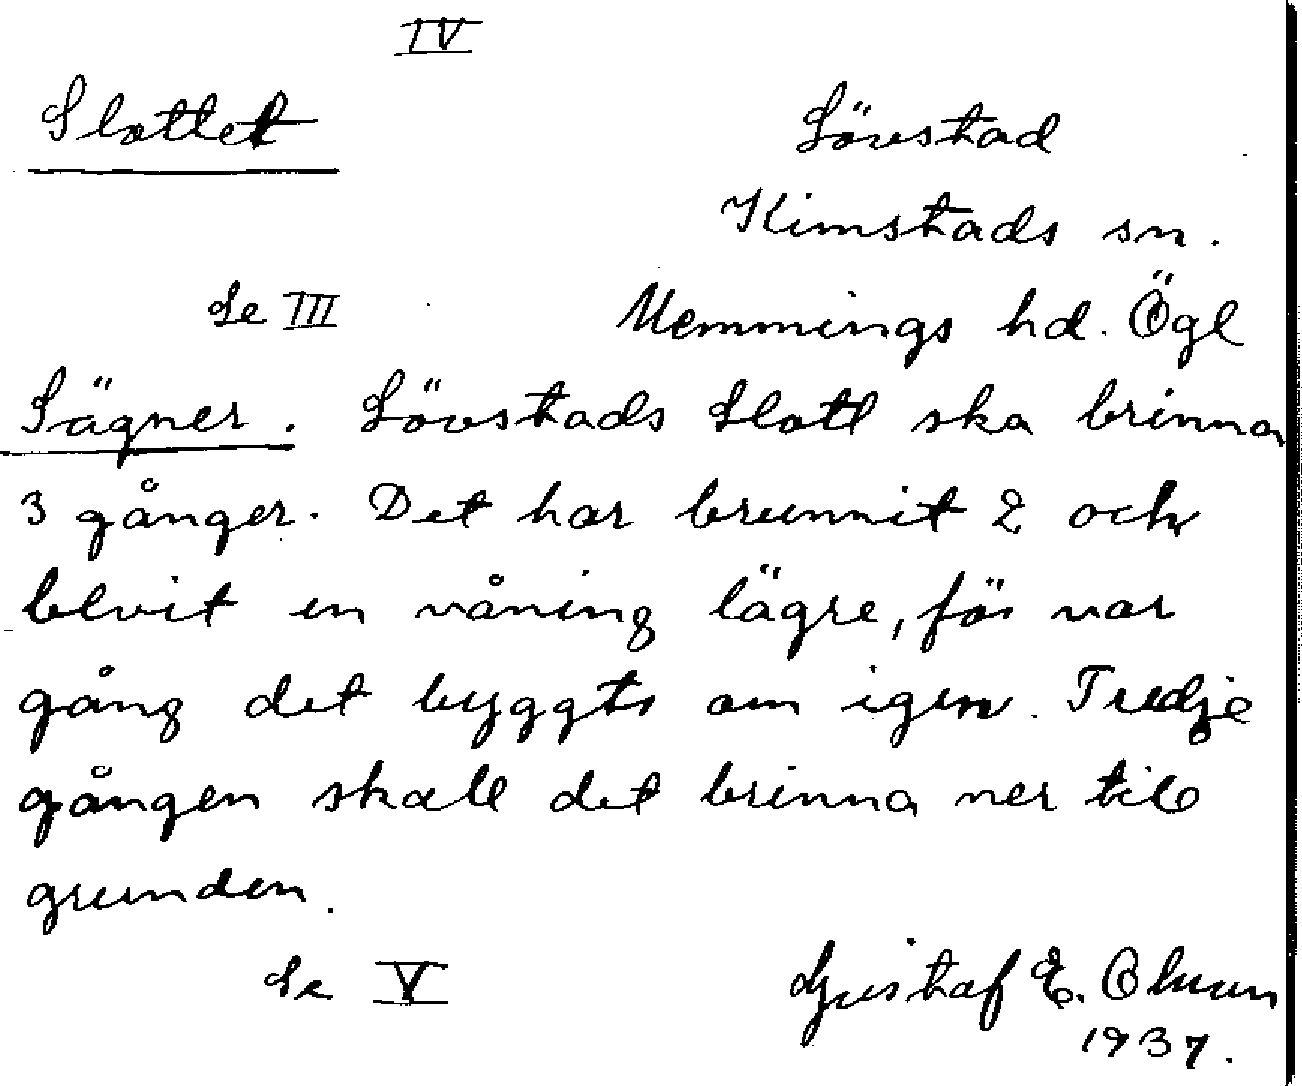 IV
Slottet
Lövstad
Kimstads sn.
Se III
Memmings hd. Ögl
Sägner. Lövstads Slott ska brinna
3 gånger. Det har brunnit 2 och
blvit en våning lägre, för var
gång det byggts om igen. Tredje
gången skall det brinna ner till
grunden.
Se V
Gustaf E.
1937.